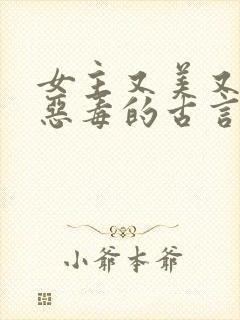 女主又美又
恶毒的古言
小爷本爷